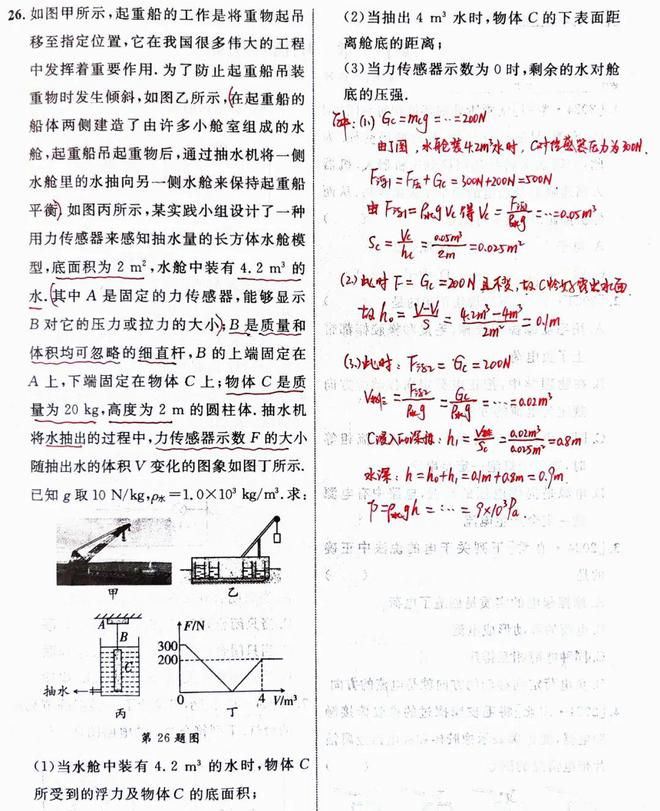 26. 如图甲所示,起重船的工作是将重物起吊
移至指定位置,它在我国很多伟大的工程
中发挥着重要作用.为了防止起重船吊装
重物时发生倾斜,如图乙所示,(在起重船的
船体两侧建造了由许多小舱室组成的水
舱,起重船吊起重物后,通过抽水机将一侧
水舱里的水抽向另一侧水舱来保持起重船
平衡).如图丙所示,某实践小组设计了一种
用力传感器来感知抽水量的长方体水舱模
型,底面积为 2 m²,水舱中装有 4.2 m³ 的
水.(其中 A 是固定的力传感器,能够显示
B 对它的压力或拉力的大小);B 是质量和
体积均可忽略的细直杆,B 的上端固定在
A 上,下端固定在物体 C 上;物体 C 是质
量为 20 kg,高度为 2 m 的圆柱体.抽水机
将水抽出的过程中,力传感器示数 F 的大小
随抽出水的体积 V 变化的图象如图丁所示.
已知 g 取 10 N/kg,ρ水=1.0×10³ kg/m³.求:
甲
乙
A
B
C
抽水
丙
F/N
300
200
0
4
V/m³
丁
第 26 题图
(1)当水舱中装有 4.2 m³ 的水时,物体 C
所受到的浮力及物体 C 的底面积;
(2)当抽出 4 m³ 水时,物体 C 的下表面距
离舱底的距离;
(3)当力传感器示数为 0 时,剩余的水对舱
底的压强.
解:(1) Gc=mcg=…=200N
由丁图,水舱装4.2m³水时,C对传感器压力为300N.
F浮1=F压+Gc=300N+200N=500N
由F浮1=ρ水gVc得Vc=F浮1/ρ水g=…=0.05m³
Sc=Vc/hc=0.05m³/2m=0.025m²
(2)此时F=Gc=200N且不变,故C恰好露出水面
故h₀=V-V/S=4.2m³-4m³/2m²=0.1m
(3)此时:F浮2=Gc=200N
V排=F浮2/ρ水g=Gc/ρ水g=…=0.02m³
C浸入的深度:h₁=V排/Sc=0.02m³/0.025m²=0.8m
水深:h=h₀+h₁=0.1m+0.8m=0.9m.
p=ρ水gh=…=9×10³Pa.